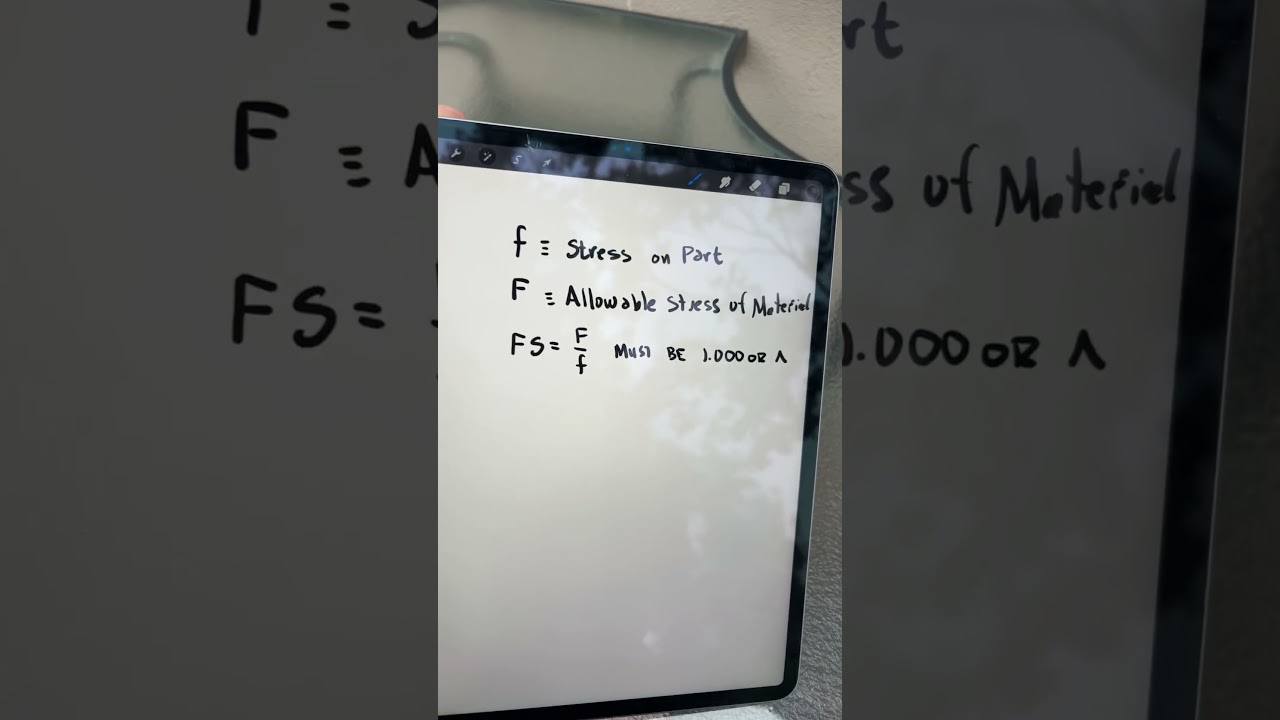 f ≡ Stress on Part
F ≡ Allowable Stress of Material
FS = F/f MUST BE 1.000 OR ∧